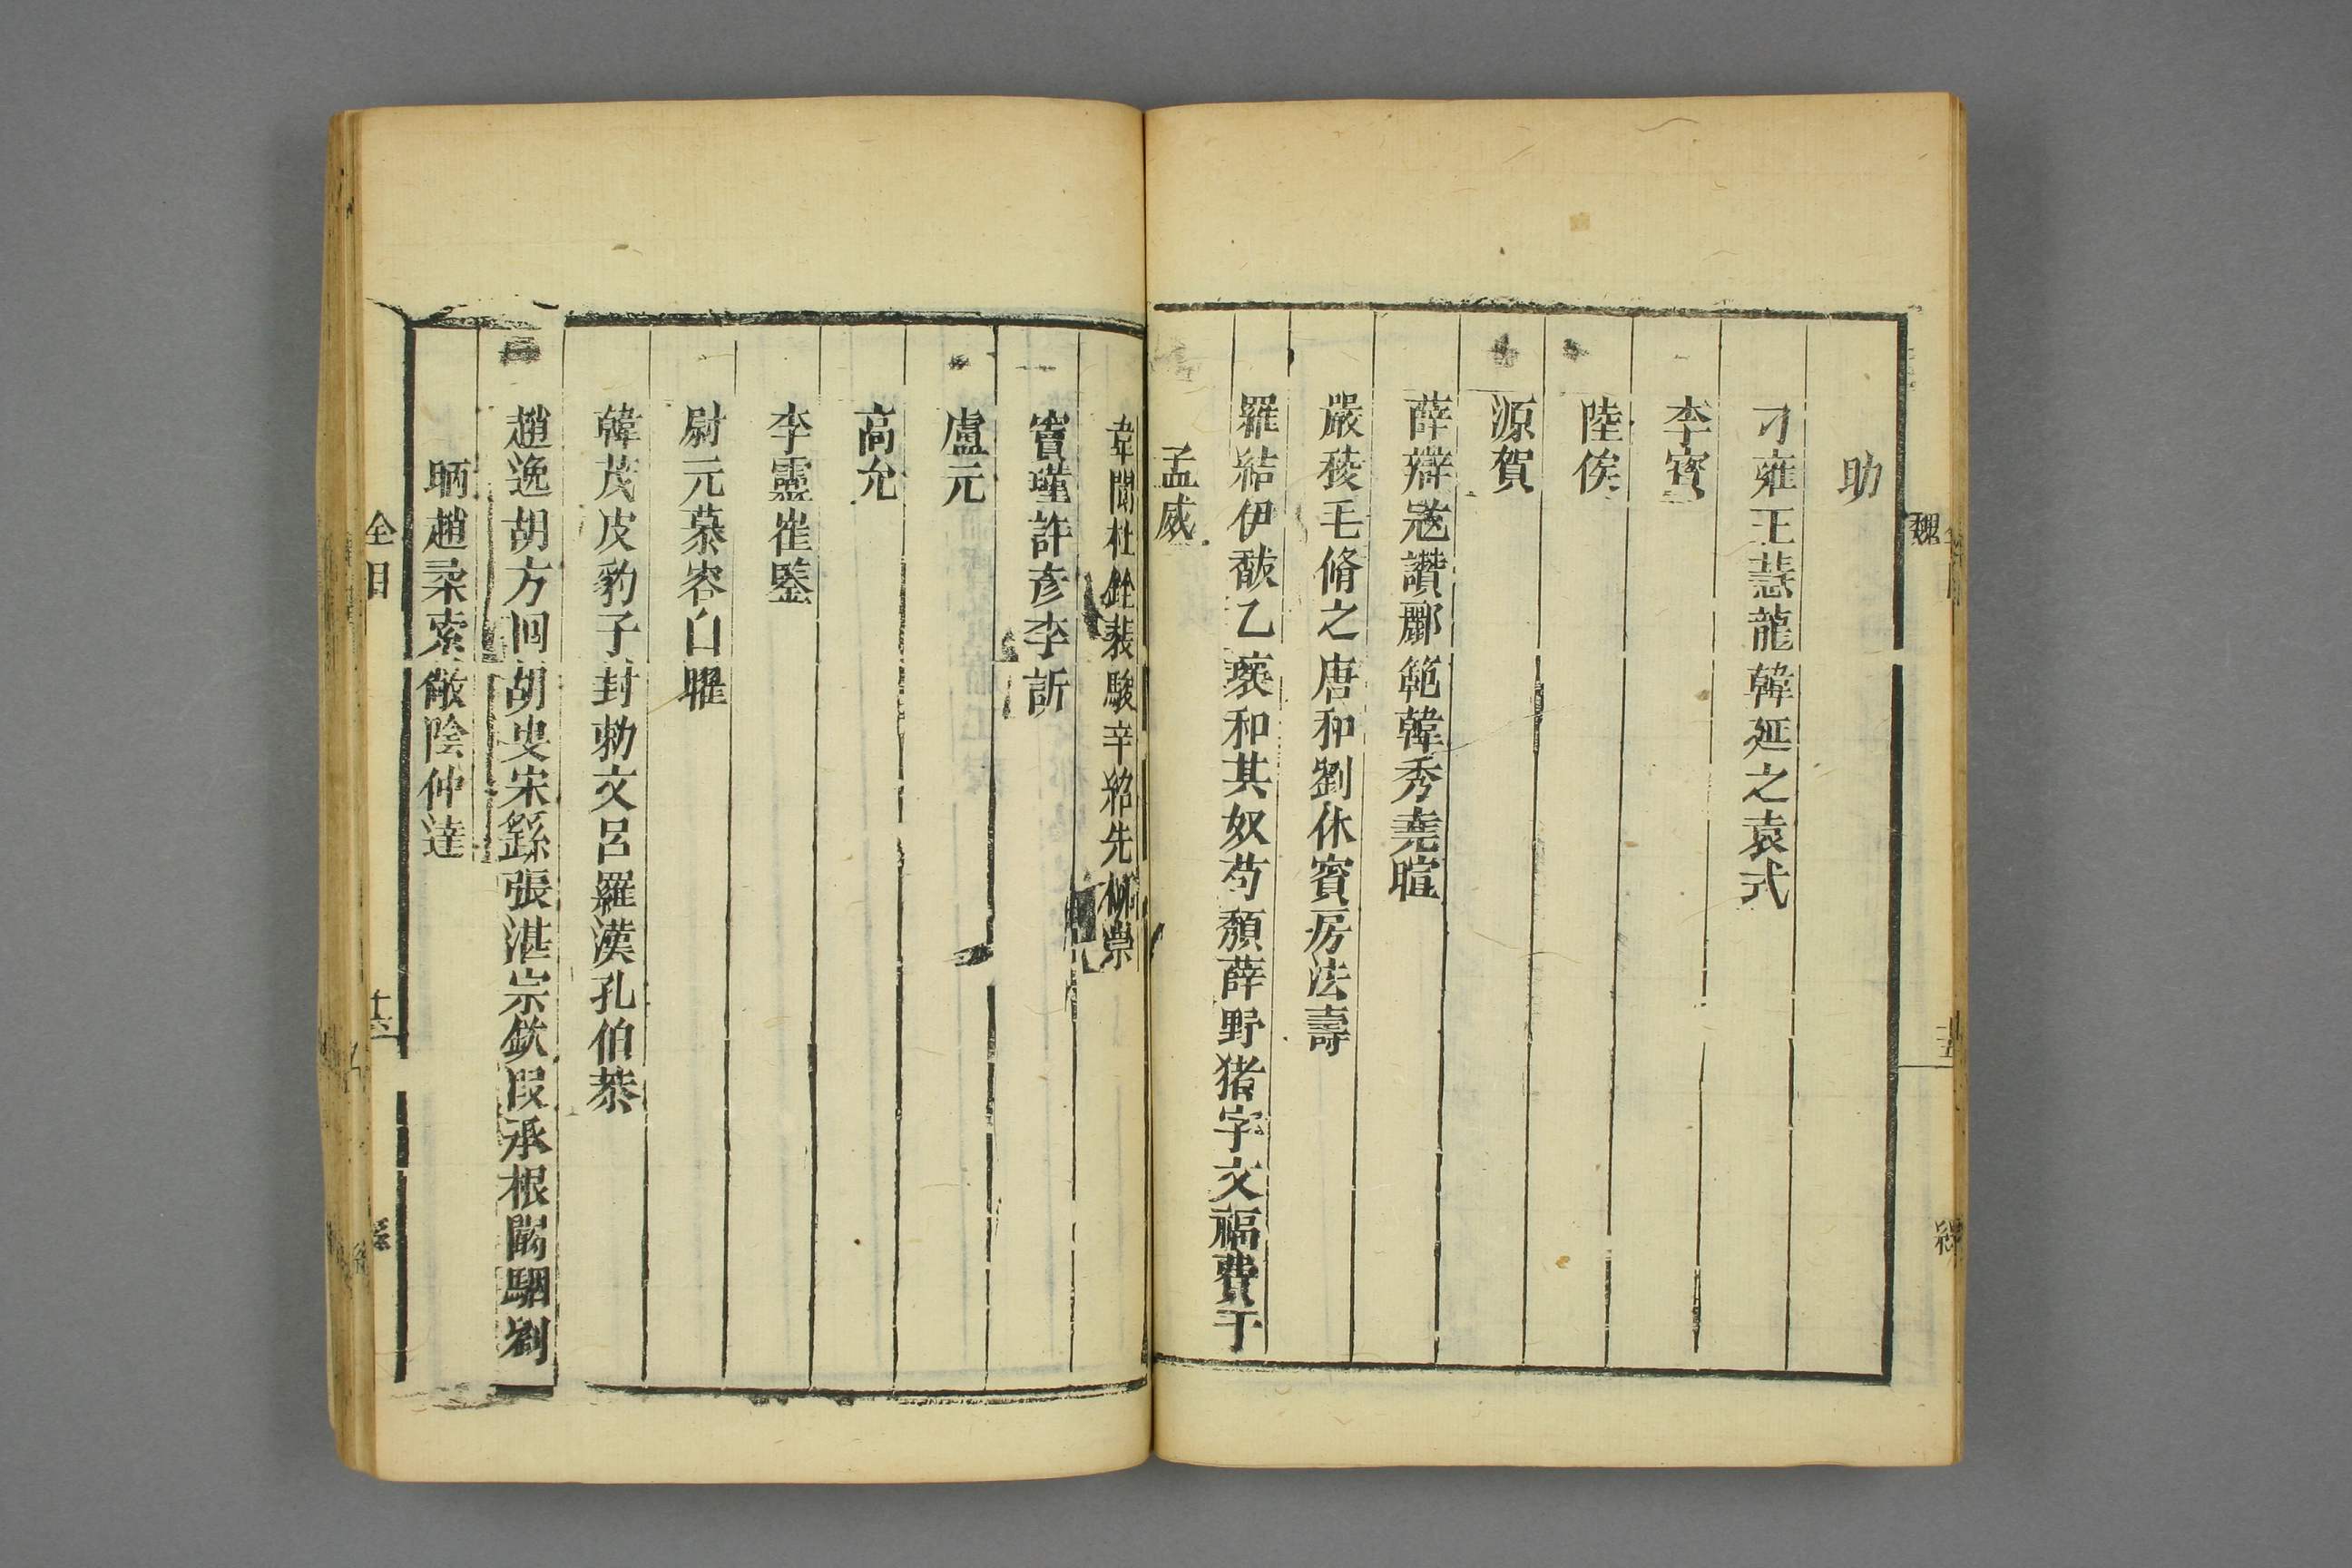 助
刁雍王慧龍韓延之袁式
李寶
陸俟
源賀
薛辯寇讚酈範韓秀堯暄
嚴稜毛脩之唐和劉休賓房法壽
羅結伊馛乙瓌和其奴苟頹薛野猪宇文福費于
孟威
韋閬杜銓裴駿辛紹先柳崇
竇瑾許彥李訢
盧元
高允
李靈崔鑒
尉元慕容白曜
韓茂皮豹子封勑文呂羅漢孔伯恭
趙逸胡方回胡叟宋繇張湛宗欽段承根闞駰劉
昞趙柔索敞陰仲達
魏
十五
全目
十六